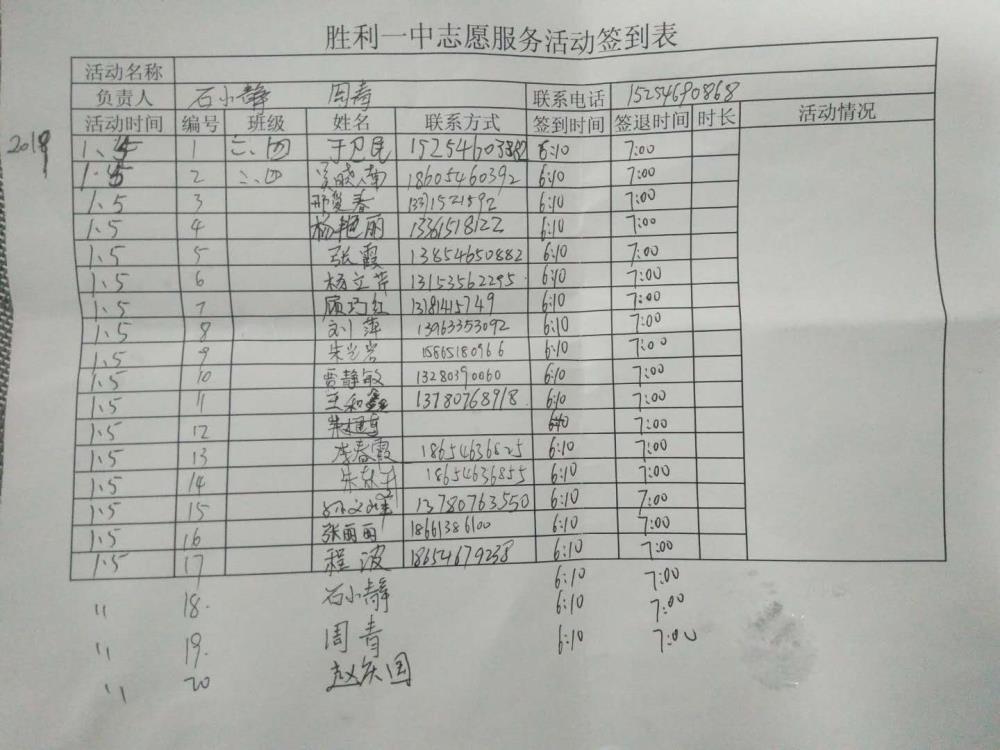 胜利一中志愿服务活动签到表
活动名称
负责人 石小静 周青 联系电话 15254690868
活动时间 编号 班级 姓名 联系方式 签到时间 签退时间 时长 活动情况
2019 1.5 1 二.四 于卫民 6:10 7:00
1.5 2 二.四 吴晓南 18605460392 6:10 7:00
1.5 3 邢爱春 13371521592 6:10 7:00
1.5 4 杨艳丽 13361518122 6:10 7:00
1.5 5 张霞 13854650882 6:10 7:00
1.5 6 杨立萍 13153562295 6:10 7:00
1.5 7 顾巧红 13181415749 6:10 7:00
1.5 8 刘萍 13963353092 6:10 7:00
1.5 9 朱光岩 15865180966 6:10 7:00
1.5 10 贾静敏 13280390060 6:10 7:00
1.5 11 王和鑫 13780768918 6:10 7:00
1.5 12 6:10 7:00
1.5 13 李春霞 18654636825 6:10 7:00
1.5 14 18654636855 6:10 7:00
1.5 15 13780763550 6:10 7:00
1.5 16 张丽丽 18661386100 6:10 7:00
1.5 17 程波 18654679238 6:10 7:00
〃 18. 石小静 6:10 7:00
〃 19. 周青 6:10 7:00
〃 20 赵庆国 6:10 7:00